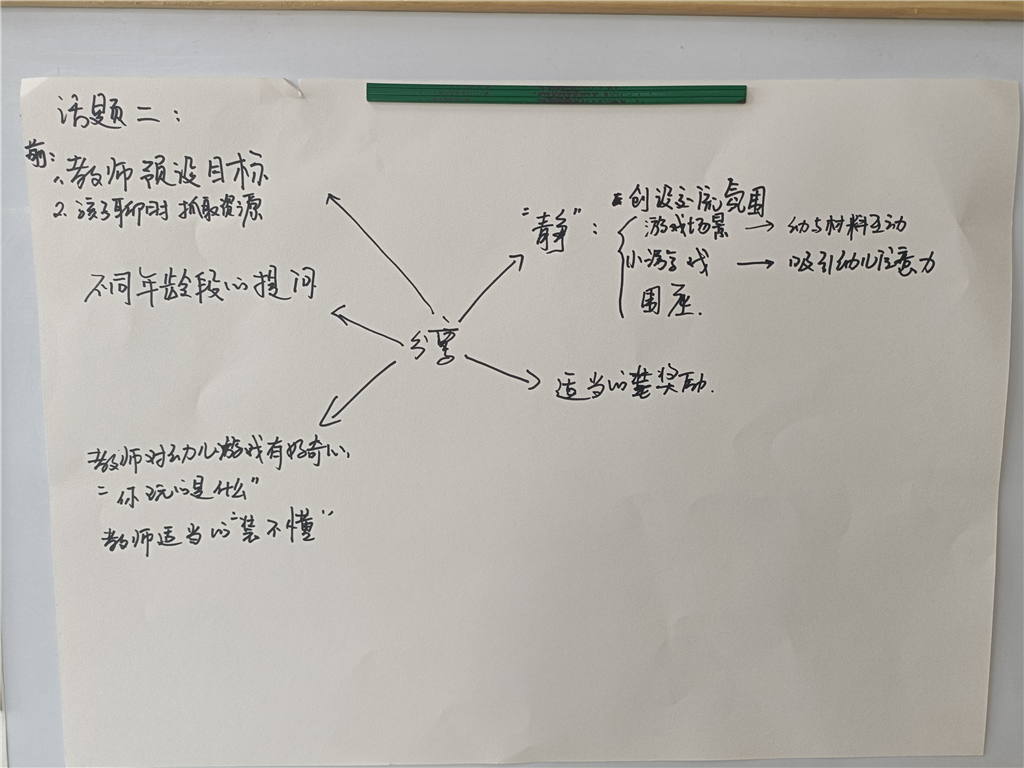 话题二：
前：
1、教师预设目标
2. 孩子聊时 抓取资源
不同年龄段的提问
分享
"静"：
创设交流氛围
游戏场景 → 幼与材料互动
小游戏 → 吸引幼儿注意力
围座.
适当的奖励.
教师对幼儿游戏有好奇心，
"你玩的是什么"
教师适当的"装不懂"